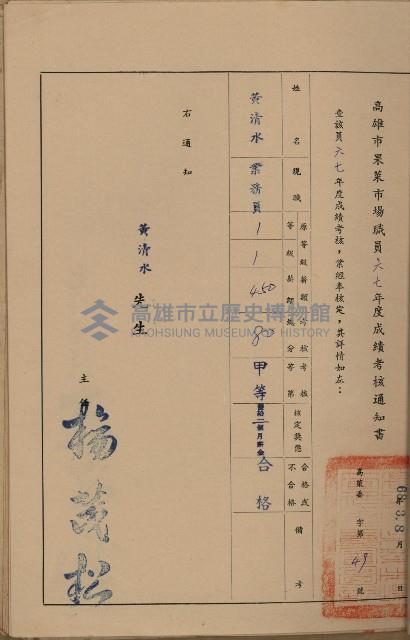 高雄市果菜市場職員六七年度成績考核通知書
年 月 日
68.3.8
高菜委 字第 49 號
查該員六七年度成績考核，業經奉核定，其詳情如左：
姓名 現職 原等級薪額 考核總分 考核等第 核定獎懲 合格或不合格 備考
黃清水 業務員 1 1 450 80 甲等 二個月薪金 合格
右通知
黃清水 先生
主任 楊茂松
高雄市立歷史博物館
KAOHSIUNG MUSEUM OF HISTORY